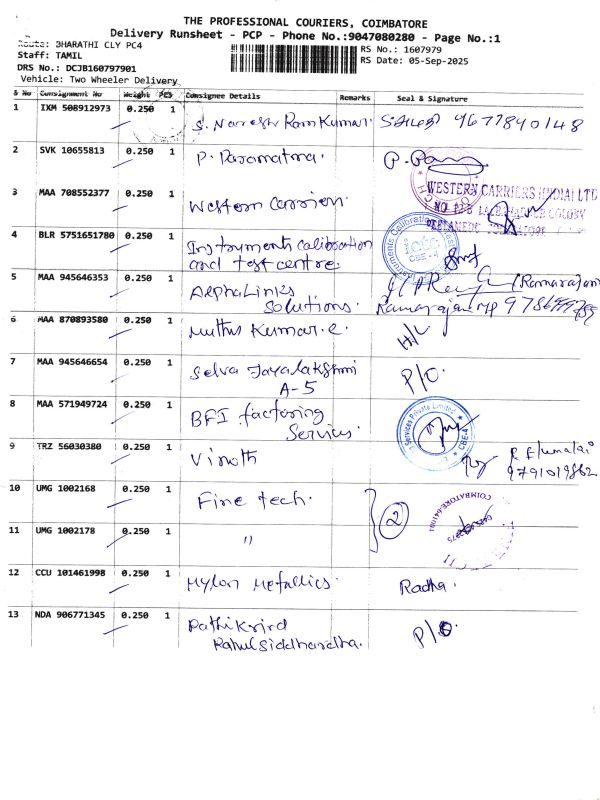 THE PROFESSIONAL COURIERS, COIMBATORE
Delivery Runsheet - PCP - Phone No.:9047080280 - Page No.:1
Route: BHARATHI CLY PC4
RS No.: 1607979
Staff: TAMIL
RS Date: 05-Sep-2025
DRS No.: DCJB160797901
Vehicle: Two Wheeler Delivery
S No Consignment No Weight PCS Consignee Details Remarks Seal & Signature
1 IXM 508912973 0.250 1 S. Naresh Ram Kumar. 9677840148
2 SVK 10655813 0.250 1 P. Paramatma.
3 MAA 708552377 0.250 1 Western carriers.
WESTERN CARRIERS (INDIA) LTD
4 BLR 5751651780 0.250 1 Instruments calibration
and test centre.
ictc
CBE-4
5 MAA 945646353 0.250 1 AlphaLinks (Ramarajan)
Solutions.
6 MAA 870893580 0.250 1 Muthu Kumar.e. H/L
7 MAA 945646654 0.250 1 Selva Jayalakshmi P/O.
A-5
8 MAA 571949724 0.250 1 BFI factoring
Services.
Services Private Limited
CBE-4
9 TRZ 56030380 0.250 1 Vinoth
9791019862
10 UMG 1002168 0.250 1 Fine tech. 2
COIMBATORE-641
11 UMG 1002178 0.250 1 "
12 CCU 101461998 0.250 1 Mylon Metallics. Radha.
13 NDA 906771345 0.250 1 P/O
Rahul Siddhardha.